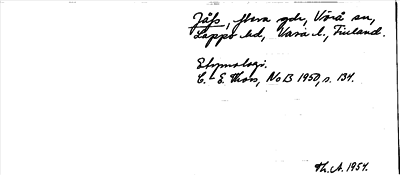 Jåfs, flera gdr, Vörå sn,
Lappo hd, Vasa l., Finland.
Etymologi.
C. E. Thors, NoB 1950, s. 134.
Th. A. 1954.